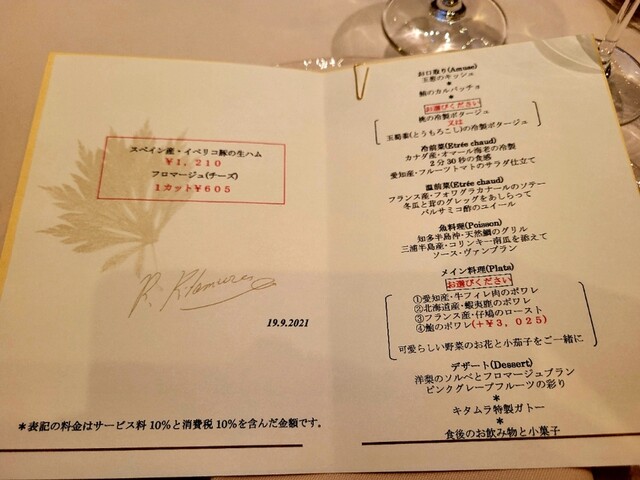 スペイン産・イベリコ豚の生ハム
￥1,210
フロマージュ(チーズ)
1カット￥605
R. Kitamura
19.9.2021
＊表記の料金はサービス料10%と消費税10%を含んだ金額です。
お口取り(Amuse)
玉葱のキッシュ
＊
鮪のカルパッチョ
お選びください
桃の冷製ポタージュ
又は
玉蜀黍(とうもろこし)の冷製ポタージュ
冷前菜(Etrée chaud)
カナダ産・オマール海老の冷製
2分30秒の食感
愛知産・フルーツトマトのサラダ仕立て
温前菜(Etrée chaud)
フランス産・フォワグラカナールのソテー
冬瓜と茸のグレッグをあしらって
バルサミコ酢のユイール
魚料理(Poisson)
知多半島沖・天然鯛のグリル
三浦半島産・コリンキー南瓜を添えて
ソース・ヴァンブラン
メイン料理(Plats)
お選びください
①愛知産・牛フィレ肉のポワレ
②北海道産・蝦夷鹿のポワレ
③フランス産・仔鳩のロースト
④鮑のポワレ(+￥3,025)
可愛らしい野菜のお花と小茄子をご一緒に
デザート(Dessert)
洋梨のソルベとフロマージュブラン
ピンクグレープフルーツの彩り
＊
キタムラ特製ガトー
＊
食後のお飲み物と小菓子